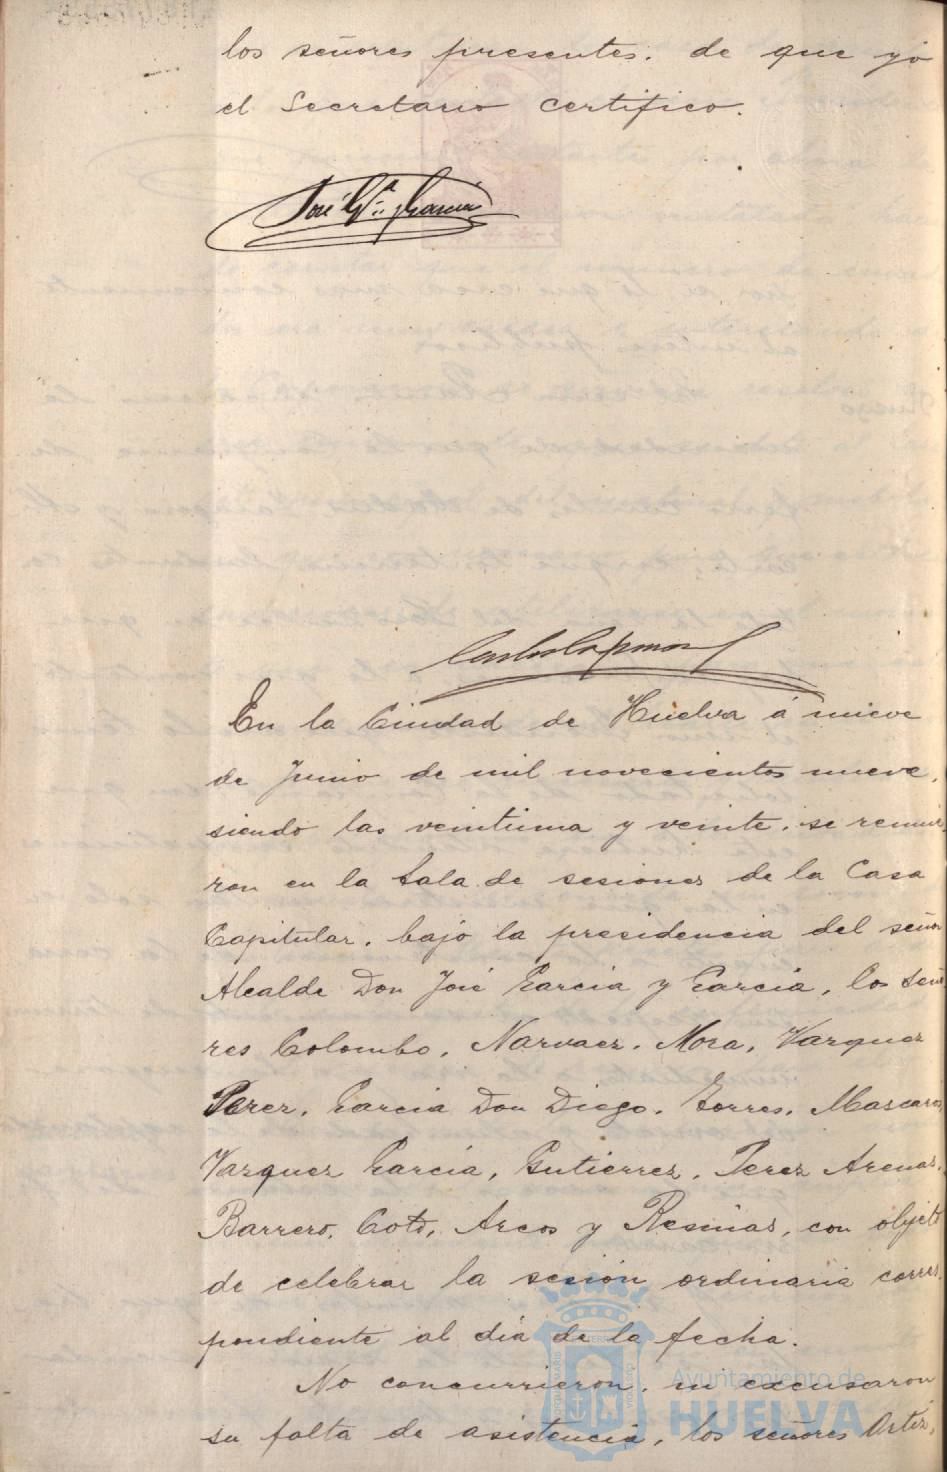 los señores presentes. de que yo
el Secretario certifico.
José Gª y García
En la Ciudad de Huelva á nueve
de Junio de mil novecientos nueve,
siendo las veintiuna y veinte. se reunie
ron en la Sala de sesiones de la Casa
Capitular. bajo la presidencia del señor
Alcalde Don José Garcia y Garcia, los seño
res Colombo, Narvaez. Mora, Vazquez
Perez, Garcia Don Diego. Torres. Mascaros
Vazquez Garcia, Gutierrez, Perez Arenas.
Barrero. Coto, Arcos y Resinas, con objeto
de celebrar la sesión ordinaria corres
pondiente al día de la fecha.
No concurrieron. ni excusaron
su falta de asistencia, los señores Ortiz,
Ayuntamiento de
HUELVA